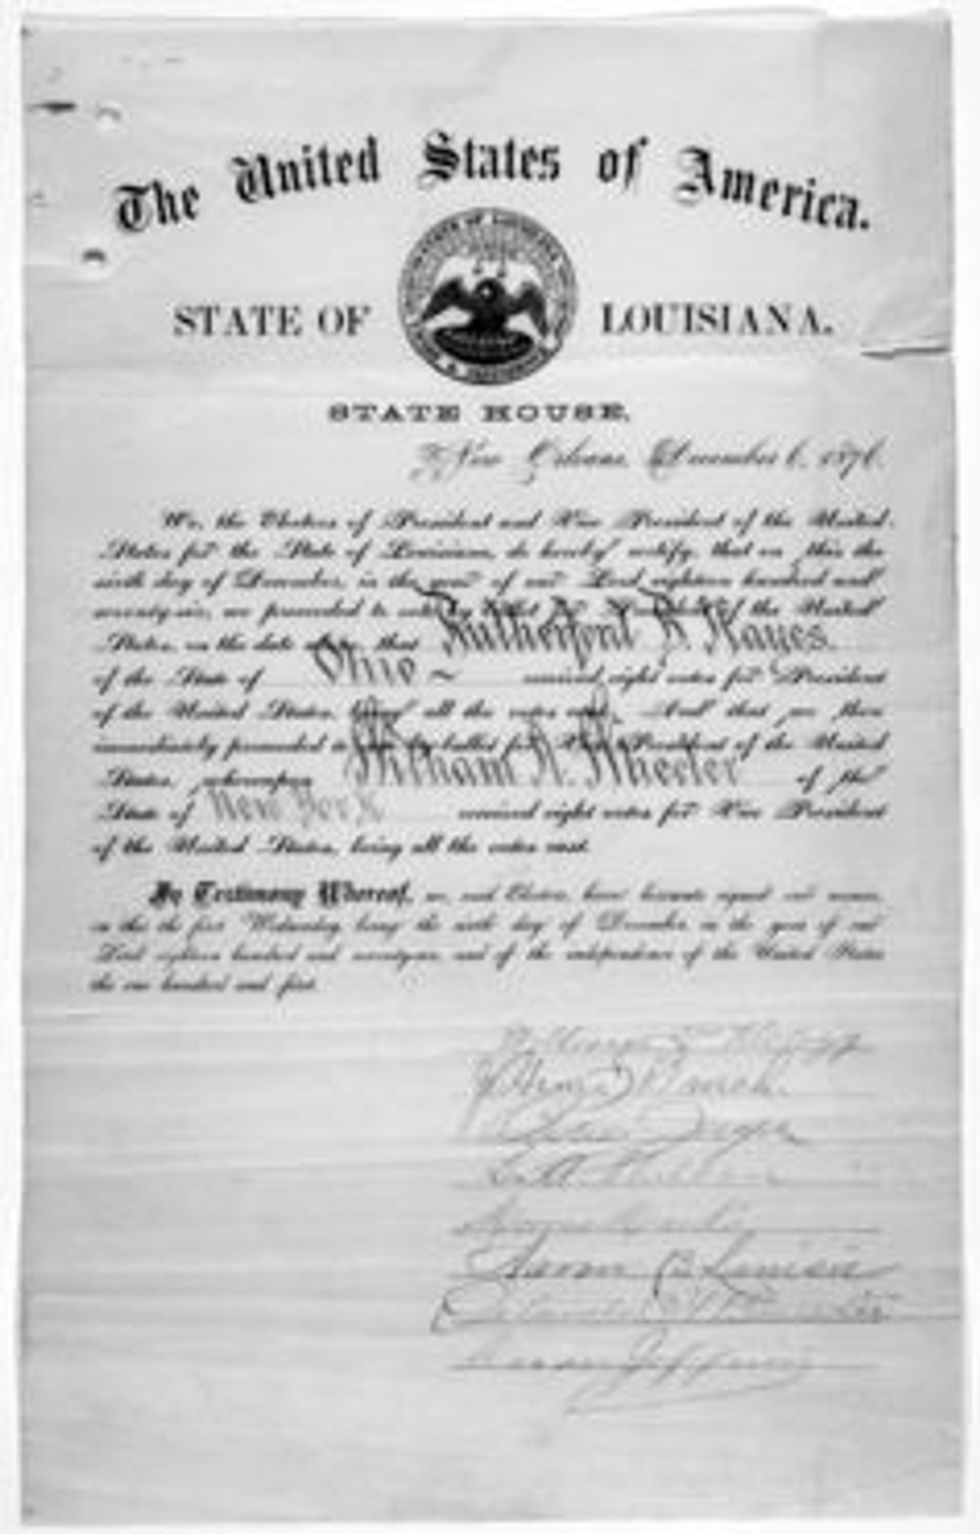 The United States of America.
STATE OF LOUISIANA.
STATE HOUSE,
New Orleans, December 6, 1876.
We, the Electors of President and Vice President of the United
States for the State of Louisiana, do hereby certify, that on this the
sixth day of December, in the year of our Lord eighteen hundred and
seventy-six, we proceeded to vote by ballot for President of the United
States, on the date above, that Rutherford B. Hayes.
of the State of Ohio ~ received eight votes for President
of the United States, being all the votes cast. And that we then
immediately proceeded to vote by ballot for Vice President of the United
States, whereupon William A. Wheeler of the
State of New York received eight votes for Vice President
of the United States, being all the votes cast.
In Testimony Whereof, we, said Electors, have hereunto signed our names,
on this the first Wednesday, being the sixth day of December, in the year of our
Lord eighteen hundred and seventy-six, and of the independence of the United States
the one hundred and first.
Aaron B Levisee